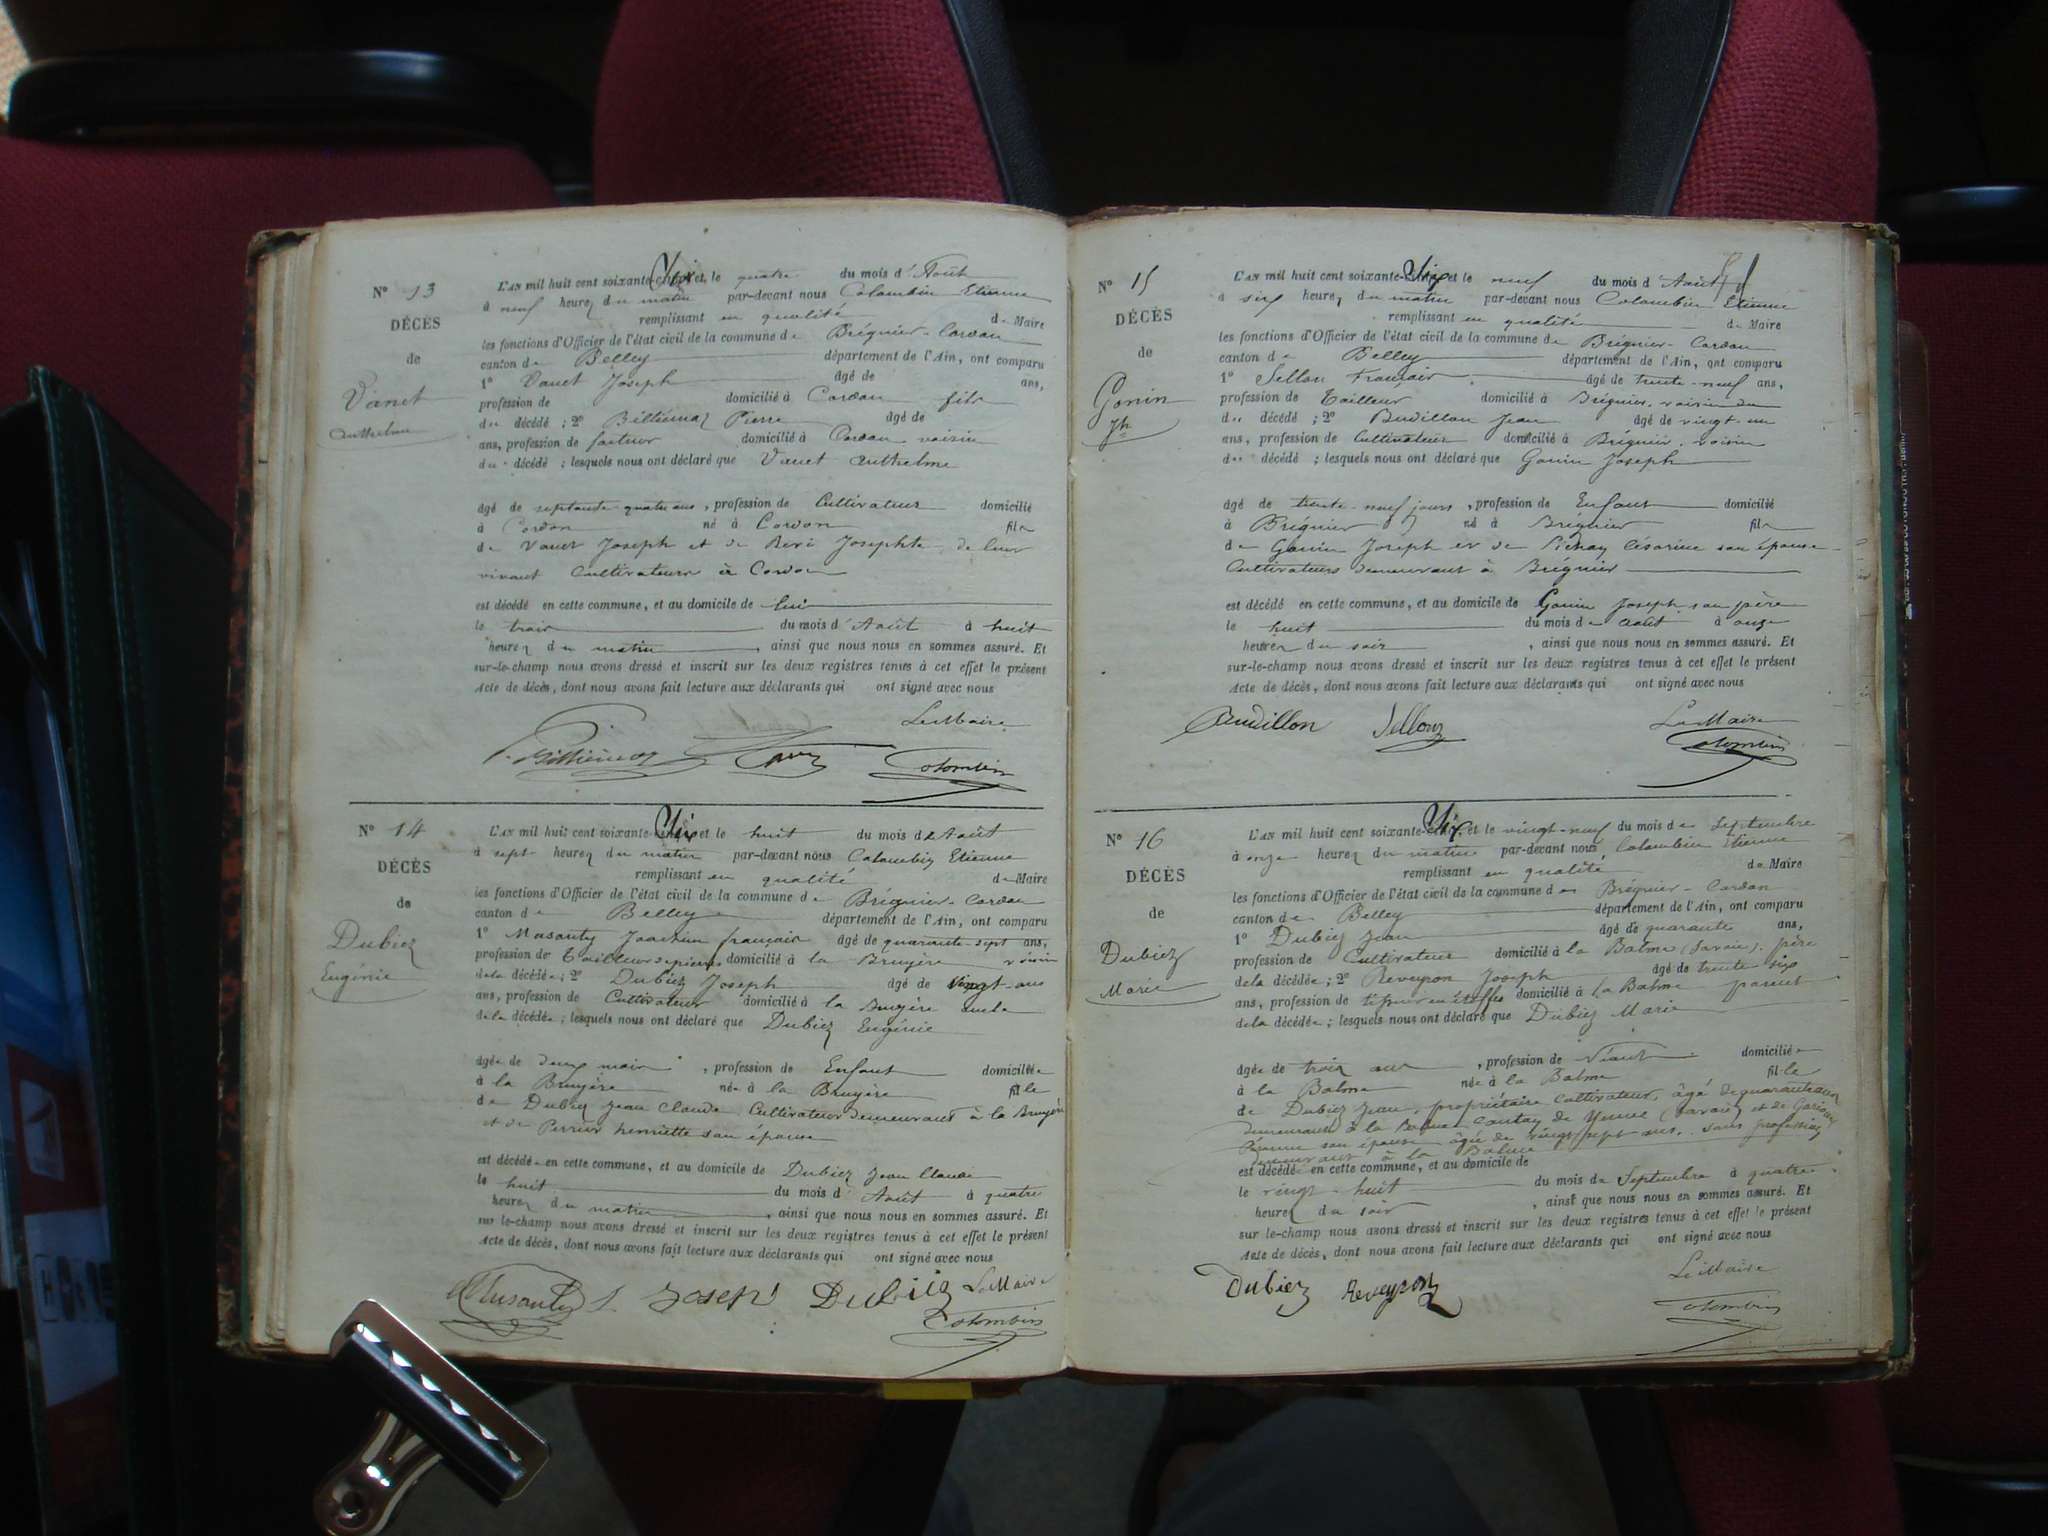 N° 13
DÉCÈS
de
Vanet
Anthelme
L'AN mil huit cent soixante-six et le quatre du mois d'Août
à neuf heures du matin par-devant nous Colombin Etienne
remplissant en qualité de Maire
les fonctions d'Officier de l'état civil de la commune de Brégnier-Cordon
canton de Belley département de l'Ain, ont comparu
1° Vanet Joseph âgé de ans,
profession de domicilié à Cordon fils
du décédé ; 2° Billiémaz Pierre âgé de
ans, profession de facteur domicilié à Cordon voisin
du décédé ; lesquels nous ont déclaré que Vanet Anthelme
âgé de septante-quatre ans, profession de Cultivateur domicilié
à Cordon né à Cordon fils
de Vanet Joseph et de Josephte de leur
vivant Cultivateurs à Cordon
est décédé en cette commune, et au domicile de lui
le trois du mois d'Août à huit
heures du matin, ainsi que nous nous en sommes assuré. Et
sur-le-champ nous avons dressé et inscrit sur les deux registres tenus à cet effet le présent
Acte de décès, dont nous avons fait lecture aux déclarants qui ont signé avec nous
Le Maire
P. Billiémaz Colombin
N° 14
DÉCÈS
de
Dubiez
Eugénie
L'AN mil huit cent soixante-six et le huit du mois d'Août
à sept heures du matin par-devant nous Colombin Etienne
remplissant en qualité de Maire
les fonctions d'Officier de l'état civil de la commune de Brégnier-Cordon
canton de Belley département de l'Ain, ont comparu
1° Musanty Joachim français âgé de quarante-sept ans,
profession de Tailleur de pierres domicilié à la Bruyère voisin
de la décédée ; 2° Dubiez Joseph âgé de vingt-ans
ans, profession de Cultivateur domicilié à la Bruyère oncle
de la décédée ; lesquels nous ont déclaré que Dubiez Eugénie
âgée de deux mois, profession de Enfant domiciliée
à la Bruyère née à la Bruyère fille
de Dubiez Jean Claude Cultivateur demeurant à la Bruyère
et de Perrier henriette son épouse
est décédée en cette commune, et au domicile de Dubiez Jean Claude
le huit du mois d'Août à quatre
heures du matin, ainsi que nous nous en sommes assuré. Et
sur le-champ nous avons dressé et inscrit sur les deux registres tenus à cet effet le présent
Acte de décès, dont nous avons fait lecture aux déclarants qui ont signé avec nous
Musanty J. Joseph Dubiez Le Maire
Colombin
N° 15
DÉCÈS
de
Gonin
Jh
L'AN mil huit cent soixante-six et le neuf du mois d'Août
à six heures du matin par-devant nous Colombin Etienne
remplissant en qualité de Maire
les fonctions d'Officier de l'état civil de la commune de Brégnier-Cordon
canton de Belley département de l'Ain, ont comparu
1° Sellou Français âgé de trente-neuf ans,
profession de Tailleur domicilié à Brégnier, voisin du
du décédé ; 2° Budillon Jean âgé de vingt-un
ans, profession de Cultivateur domicilié à Brégnier, voisin
du décédé ; lesquels nous ont déclaré que Gonin Joseph
âgé de trente-neuf jours, profession de Enfant domicilié
à Brégnier né à Brégnier fils
de Gonin Joseph et de Césarine son épouse
Cultivateurs demeurant à Brégnier
est décédé en cette commune, et au domicile de Gonin Joseph son père
le huit du mois de août à onze
heures du soir, ainsi que nous nous en sommes assuré. Et
sur-le-champ nous avons dressé et inscrit sur les deux registres tenus à cet effet le présent
Acte de décès, dont nous avons fait lecture aux déclarants qui ont signé avec nous
Budillon Sellou Le Maire
Colombin
N° 16
DÉCÈS
de
Dubiez
Marie
L'AN mil huit cent soixante-six et le vingt-neuf du mois de Septembre
à onze heures du matin par-devant nous Colombin Etienne
remplissant en qualité de Maire
les fonctions d'Officier de l'état civil de la commune de Brégnier-Cordon
canton de Belley département de l'Ain, ont comparu
1° Dubiez Jean âgé de quarante ans,
profession de Cultivateur domicilié à la Balme (Savoie), père
de la décédée ; 2° Reveyron Joseph âgé de trente six
ans, profession de tisseur en étoffes domicilié à la Balme parent
de la décédée ; lesquels nous ont déclaré que Dubiez Marie
âgée de trois ans, profession de domiciliée
à la Balme née à la Balme fille
de Dubiez Jean, propriétaire Cultivateur, âgé de quarante ans
demeurant à la Balme Canton de Yenne (Savoie) et de
son épouse âgée de vingt-sept ans, sans profession
demeurant à la Balme
est décédée en cette commune, et au domicile de
le vingt-huit du mois de Septembre à quatre
heures du soir, ainsi que nous nous en sommes assuré. Et
sur-le-champ nous avons dressé et inscrit sur les deux registres tenus à cet effet le présent
Acte de décès, dont nous avons fait lecture aux déclarants qui ont signé avec nous
Le Maire
Dubiez Reveyron Colombin